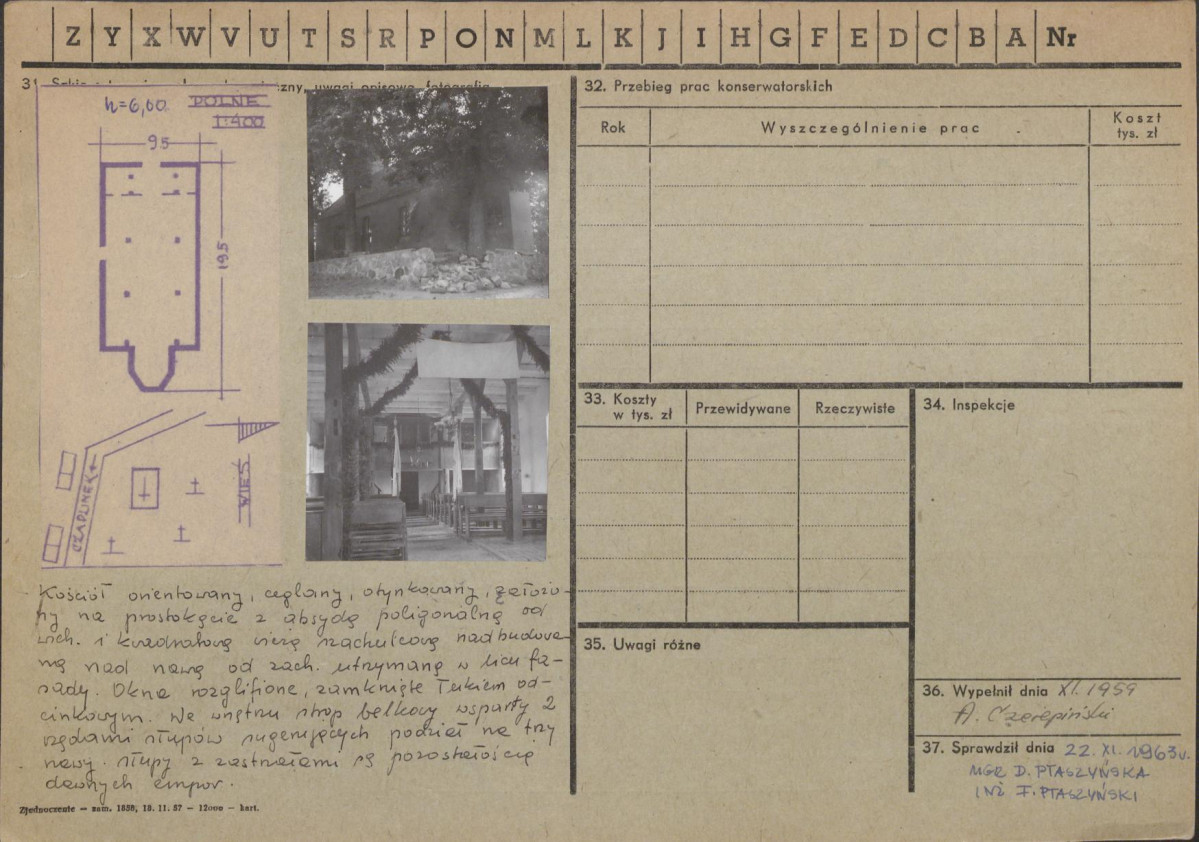 Z Y X W V U T S R P O N M L K J I H G F E D C B A Nr
31 zny, uwagi opisowe, fotografia
h=6,00 POLNE
1:400
95
195
CZAPLINEK
WIEŚ
Kościół orientowany, ceglany, otynkowany, założo-
ny na prostokącie z absydą poligonalną od
wsch. i kwadratową wieżą szachulcową nadbudowa-
ną nad nawą od zach. utrzymaną w licu fa-
sady. Okna rozglifione, zamknięte łukiem od-
cinkowym. We wnętrzu strop belkowy wsparty 2
rzędami słupów sugerujących podział na trzy
nawy. Słupy z zastrzałami są pozostałością
dawnych empor.
Zjednoczenie — zam. 1858, 18. 11. 57 — 12000 — kart.
32. Przebieg prac konserwatorskich
Rok Wyszczególnienie prac Koszt
tys. zł
33. Koszty
w tys. zł Przewidywane Rzeczywiste
34. Inspekcje
35. Uwagi różne
36. Wypełnił dnia XI. 1959
A. Czerepiński
37. Sprawdził dnia 22. XI. 1963 r.
MGR D. PTASZYŃSKA
INŻ F. PTASZYŃSKI